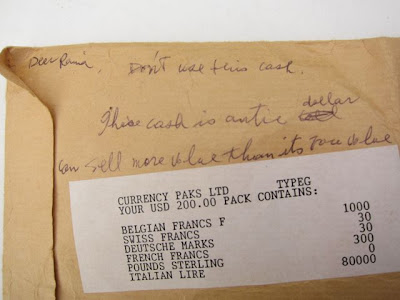 Dear Rani, Don't use this cash.
These cash is antic dollar
can sell more value than its face value
CURRENCY PAKS LTD TYPEG
YOUR USD 200.00 PACK CONTAINS:
BELGIAN FRANCS F 1000
SWISS FRANCS 30
DEUTSCHE MARKS 30
FRENCH FRANCS 300
POUNDS STERLING 0
ITALIAN LIRE 80000